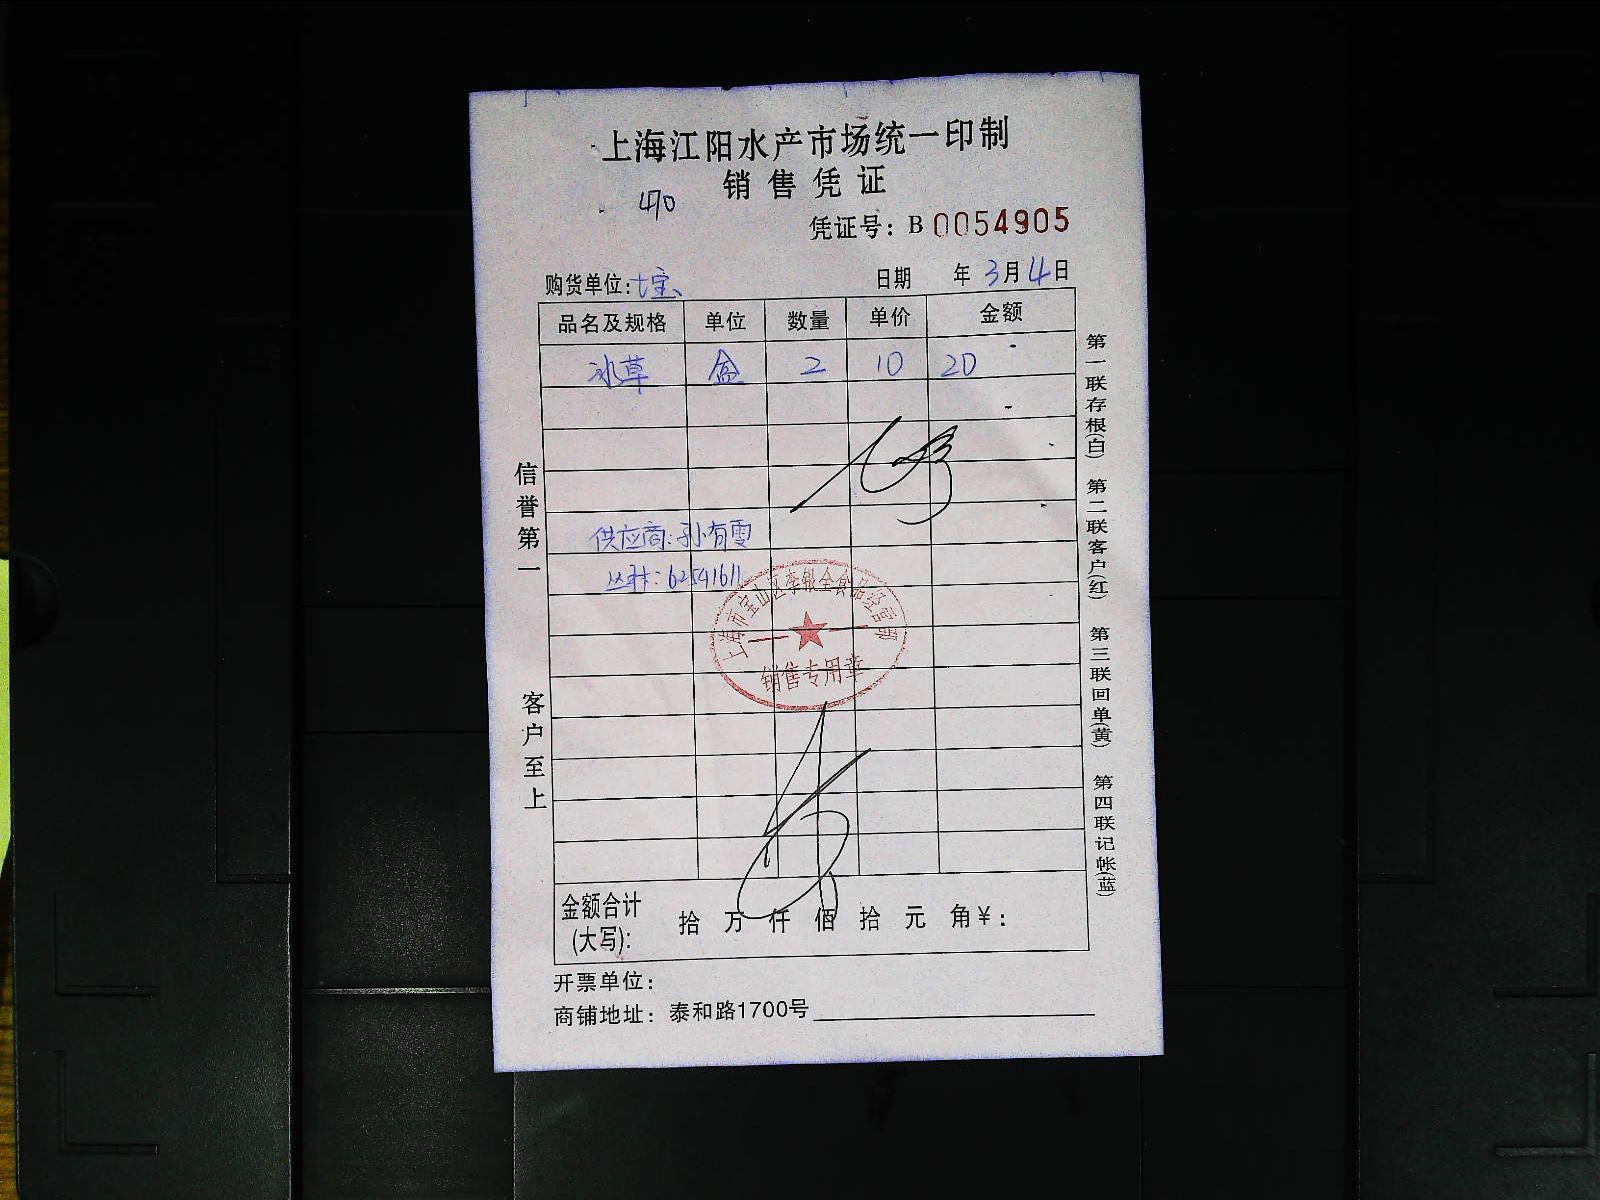 上海江阳水产市场统一印制
销售凭证
470
凭证号：B 0054905
购货单位：七宝 日期 年 3月4日
品名及规格 单位 数量 单价 金额
冰草 盒 2 10 20
供应商：孙有雯
丛林：62541611
上海市宝山区李银全食品经营部
销售专用章
金额合计 (大写)： 拾 万 仟 佰 拾 元 角￥：
开票单位：
商铺地址：泰和路1700号
信誉第一
客户至上
第一联存根(白) 第二联客户(红) 第三联回单(黄) 第四联记帐(蓝)